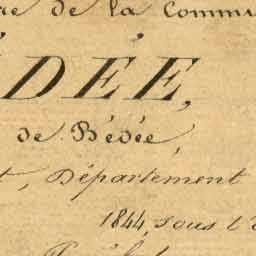 re de la Commu
DÉE,
de Bédée,
t, Département
1844, sous l'